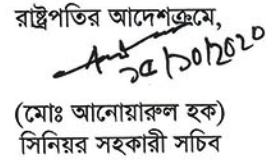 রাষ্ট্রপতির আদেশক্রমে,
(মোঃ আনোয়ারুল হক)
সিনিয়র সহকারী সচিব